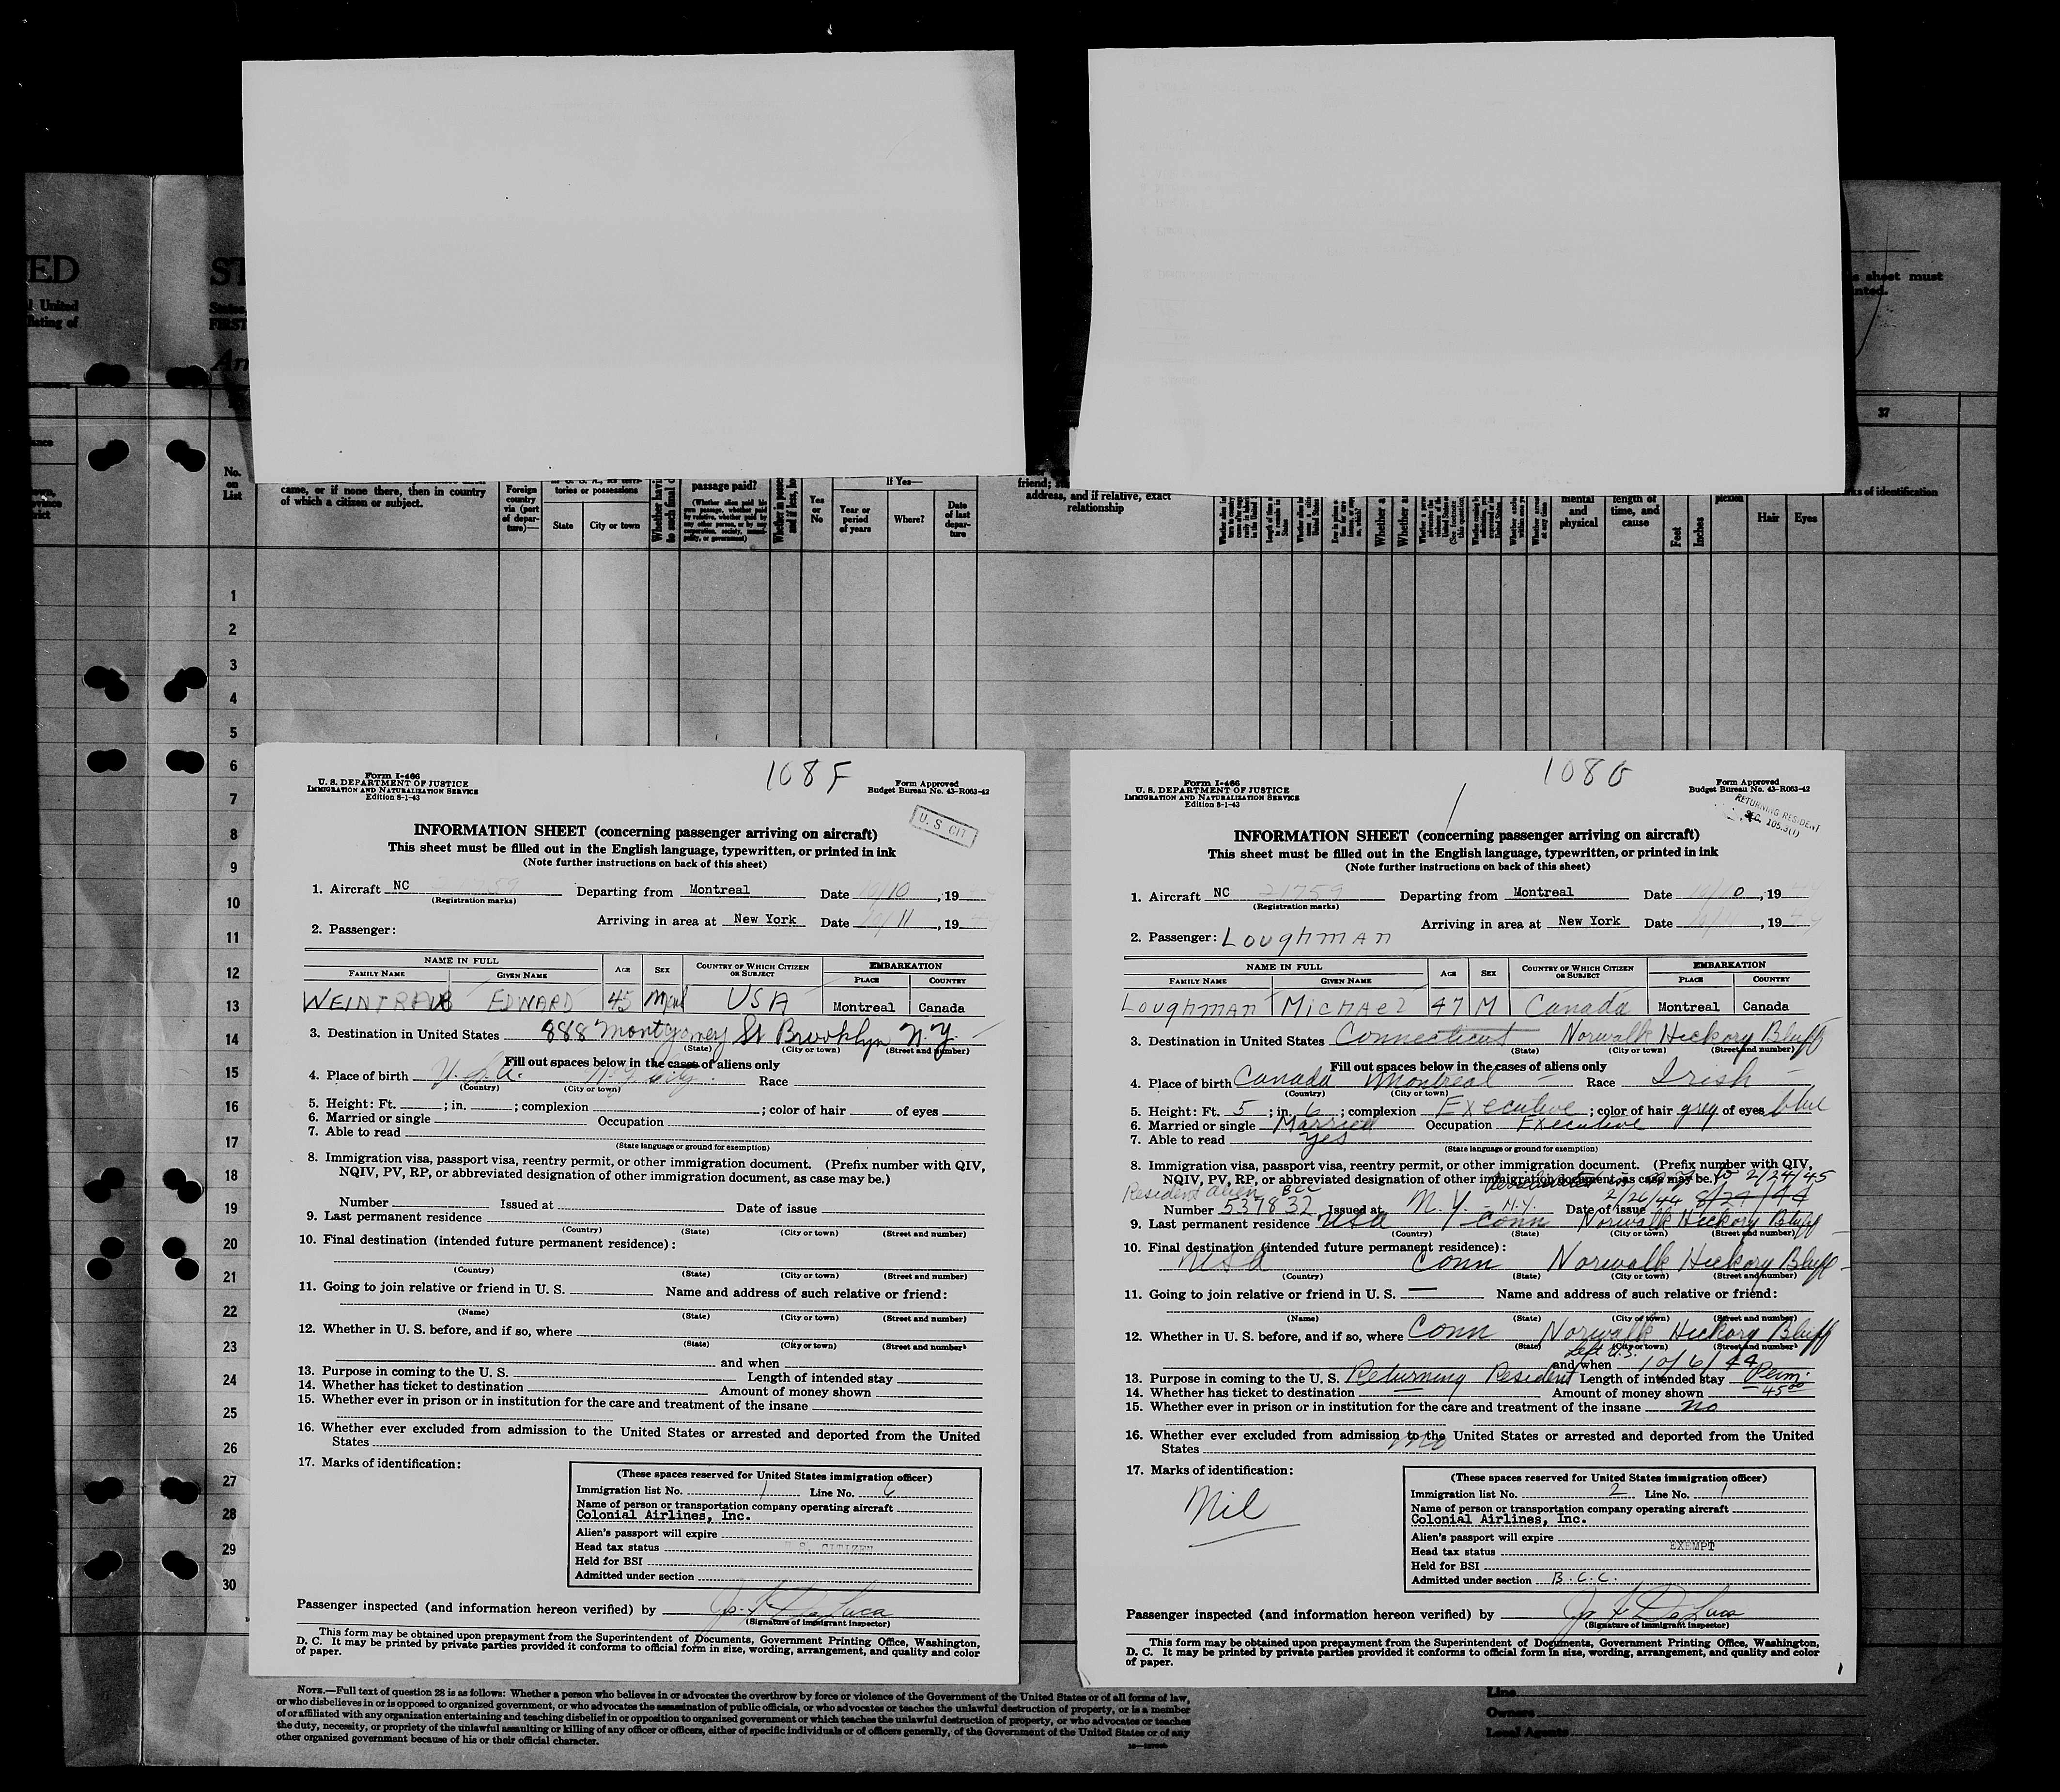 ED
ST
l United
States
listing of
FIRST
An
s sheet must
nted.
37
No.
on
List
came, or if none there, then in country
of which a citizen or subject.
Foreign
country
via (port
of depar-
ture)—
tories or possessions
State
City or town
passage paid?
Yes
or
No
If Yes—
Year or
period
of years
Where?
Date
of last
depar-
ture
address, and if relative, exact
relationship
mental
and
physical
length of
time, and
cause
Feet
Inches
plexion
Hair
Eyes
ks of identification
1
2
3
4
5
6
7
8
9
10
11
12
13
14
15
16
17
18
19
20
21
22
23
24
25
26
27
28
29
30
108 F
Form I-466
U. S. DEPARTMENT OF JUSTICE
IMMIGRATION AND NATURALIZATION SERVICE
Edition 8-1-43
Form Approved
Budget Bureau No. 43-R063-42
U. S CIT
INFORMATION SHEET (concerning passenger arriving on aircraft)
This sheet must be filled out in the English language, typewritten, or printed in ink
(Note further instructions on back of this sheet)
1. Aircraft NC 21759 Departing from Montreal Date 10/10, 19
(Registration marks)
Arriving in area at New York Date 10/11, 19
2. Passenger:
NAME IN FULL
AGE
SEX
COUNTRY OF WHICH CITIZEN
OR SUBJECT
EMBARKATION
FAMILY NAME
GIVEN NAME
PLACE
COUNTRY
WEINTRAUB EDWARD 45 Male USA Montreal Canada
3. Destination in United States 888 Montgomery St Brooklyn N.Y.
(State) (City or town) (Street and number)
Fill out spaces below in the cases of aliens only
4. Place of birth U.S.A. N.Y. City Race
(Country) (City or town)
5. Height: Ft. ; in. ; complexion ; color of hair of eyes
6. Married or single Occupation
7. Able to read
(State language or ground for exemption)
8. Immigration visa, passport visa, reentry permit, or other immigration document. (Prefix number with QIV,
NQIV, PV, RP, or abbreviated designation of other immigration document, as case may be.)
Number Issued at Date of issue
9. Last permanent residence
(Country) (State) (City or town) (Street and number)
10. Final destination (intended future permanent residence):
(Country) (State) (City or town) (Street and number)
11. Going to join relative or friend in U. S. Name and address of such relative or friend:
(Name) (State) (City or town) (Street and number)
12. Whether in U. S. before, and if so, where
(State) (City or town) (Street and number)
and when
13. Purpose in coming to the U. S. Length of intended stay
14. Whether has ticket to destination Amount of money shown
15. Whether ever in prison or in institution for the care and treatment of the insane
16. Whether ever excluded from admission to the United States or arrested and deported from the United
States
17. Marks of identification:
(These spaces reserved for United States immigration officer)
Immigration list No. 1 Line No. 6
Name of person or transportation company operating aircraft
Colonial Airlines, Inc.
Alien's passport will expire
Head tax status U.S. CITIZEN
Held for BSI
Admitted under section
Passenger inspected (and information hereon verified) by Jos. F. DeLuca
(Signature of immigrant inspector)
This form may be obtained upon prepayment from the Superintendent of Documents, Government Printing Office, Washington,
D. C. It may be printed by private parties provided it conforms to official form in size, wording, arrangement, and quality and color
of paper.
108 G
Form I-466
U. S. DEPARTMENT OF JUSTICE
IMMIGRATION AND NATURALIZATION SERVICE
Edition 8-1-43
Form Approved
Budget Bureau No. 43-R063-42
RETURNING RESIDENT
SEC. 105.3(1)
INFORMATION SHEET (concerning passenger arriving on aircraft)
This sheet must be filled out in the English language, typewritten, or printed in ink
(Note further instructions on back of this sheet)
1. Aircraft NC 21759 Departing from Montreal Date 10/10, 19
(Registration marks)
Arriving in area at New York Date , 19
2. Passenger: Loughman
NAME IN FULL
AGE
SEX
COUNTRY OF WHICH CITIZEN
OR SUBJECT
EMBARKATION
FAMILY NAME
GIVEN NAME
PLACE
COUNTRY
Loughman Michael 47 M Canada Montreal Canada
3. Destination in United States Connecticut Norwalk Hickory Bluff
(State) (City or town) (Street and number)
Fill out spaces below in the cases of aliens only
4. Place of birth Canada Montreal Race Irish
(Country) (City or town)
5. Height: Ft. 5 ; in. 6 ; complexion Executive ; color of hair grey of eyes blue
6. Married or single Married Occupation Executive
7. Able to read Yes
(State language or ground for exemption)
8. Immigration visa, passport visa, reentry permit, or other immigration document. (Prefix number with QIV,
NQIV, PV, RP, or abbreviated designation of other immigration document, as case may be.) to 2/24/45
Resident alien BCC N.Y. 2/26/44 8/29/44
Number 537832 Issued at N.Y. Date of issue
9. Last permanent residence USA Conn Norwalk Hickory Bluff
(Country) (State) (City or town) (Street and number)
10. Final destination (intended future permanent residence):
USA Conn Norwalk Hickory Bluff
(Country) (State) (City or town) (Street and number)
11. Going to join relative or friend in U. S. — Name and address of such relative or friend:
(Name) (State) (City or town) (Street and number)
12. Whether in U. S. before, and if so, where Conn Norwalk Hickory Bluff
(State) (City or town) (Street and number)
Left U.S.
and when 10/6/44
13. Purpose in coming to the U. S. Returning Resident Length of intended stay Perm.
14. Whether has ticket to destination — Amount of money shown 45⁰⁰
15. Whether ever in prison or in institution for the care and treatment of the insane no
16. Whether ever excluded from admission to the United States or arrested and deported from the United
States no
17. Marks of identification:
Nil
(These spaces reserved for United States immigration officer)
Immigration list No. 2 Line No. 1
Name of person or transportation company operating aircraft
Colonial Airlines, Inc.
Alien's passport will expire
Head tax status EXEMPT
Held for BSI
Admitted under section B.C.C.
Passenger inspected (and information hereon verified) by Jos. F. DeLuca
(Signature of immigrant inspector)
This form may be obtained upon prepayment from the Superintendent of Documents, Government Printing Office, Washington,
D. C. It may be printed by private parties provided it conforms to official form in size, wording, arrangement, and quality and color
of paper.
NOTE.—Full text of question 28 is as follows: Whether a person who believes in or advocates the overthrow by force or violence of the Government of the United States or of all forms of law,
or who disbelieves in or is opposed to organized government, or who advocates the assassination of public officials, or who advocates or teaches the unlawful destruction of property, or is a member
of or affiliated with any organization entertaining and teaching disbelief in or opposition to organized government or which teaches the unlawful destruction of property, or who advocates or teaches
the duty, necessity, or propriety of the unlawful assaulting or killing of any officer or officers, either of specific individuals or of officers generally, of the Government of the United States or of any
other organized government because of his or their official character.
Line
Owners
Local Agents